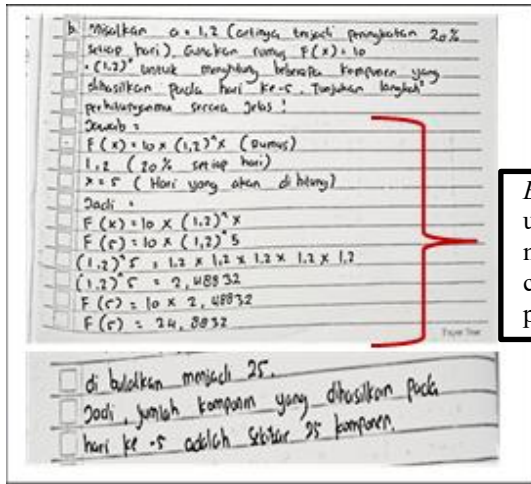 b. Misalkan a = 1,2 (artinya terjadi peningkatan 20%
setiap hari). Gunakan rumus F(x) = 10
. (1,2)ˣ untuk menghitung beberapa komponen yang
dihasilkan pada hari ke-5. Tunjukan langkah²
perhitunganmu secara jelas !
Jawab :
F(x) = 10 x (1,2)^x (rumus)
1,2 (20% setiap hari)
x = 5 (Hari yang akan di hitung)
Jadi :
F(x) = 10 x (1,2)^x
F(5) = 10 x (1,2)^5
(1,2)^5 = 1,2 x 1,2 x 1,2 x 1,2 x 1,2
(1,2)^5 = 2,48832
F(5) = 10 x 2,48832
F(5) = 24,8832
di bulatkan menjadi 25.
Jadi, jumlah komponen yang dihasilkan pada
hari ke-5 adalah sekitar 25 komponen.